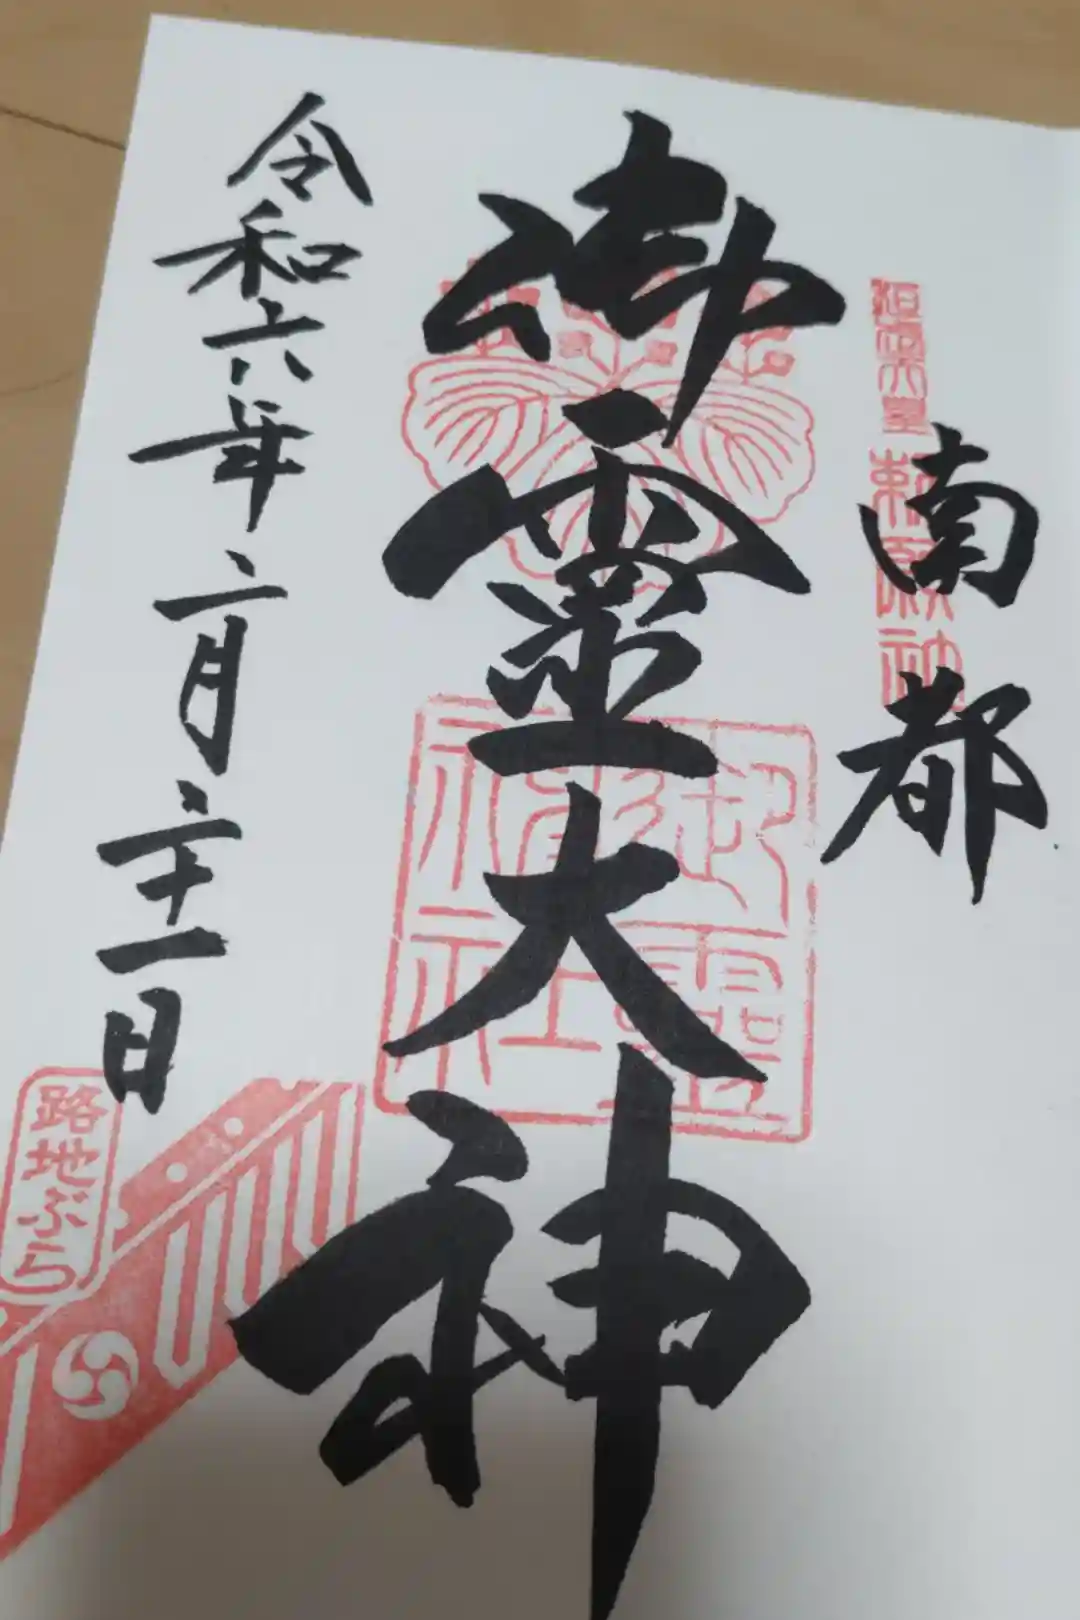 南都
御霊大神
令和六年二月二十一日
御霊神社
路地ぶら